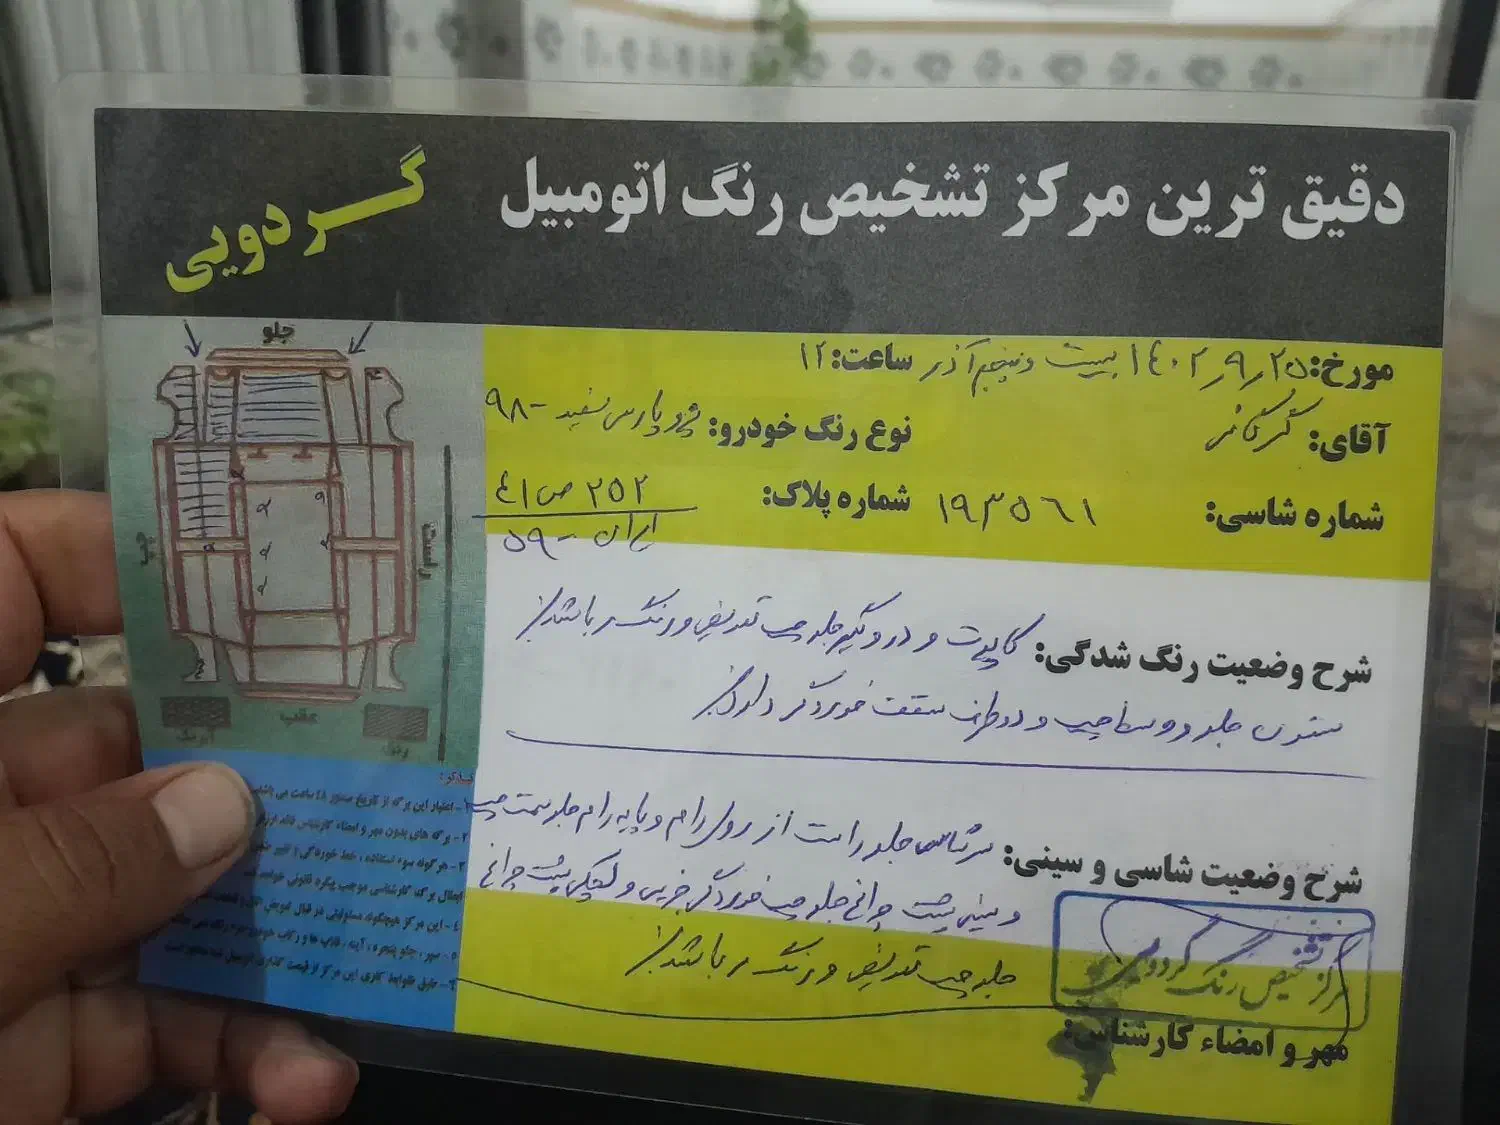 دقیق ترین مرکز تشخیص رنگ اتومبیل
گردویی
مورخ: ۱۴۰۲٫۹٫۲۵ بیست و پنجم آذر ساعت: ۱۲
آقای:
نوع رنگ خودرو: پژو پارس سفید - ۹۸
شماره شاسی: ۱۹۳۵۶۱
شماره پلاک: ۲۵۲ ص ۴۱
ایران - ۵۹
شرح وضعیت رنگ شدگی: کاپوت و در و گلگیر جلو چپ تعویض و رنگ می باشد
ستون جلو و وسط چپ و دو طرف سقف خوردگی دارد
شرح وضعیت شاسی و سینی: سرشاسی جلو راست از روی رام و پایه رام جلو سمت چپ
و سینی پشت چراغ جلو چپ خوردگی جزیی و لچکی پشت چراغ
جلو چپ تعویض و رنگ می باشد
مرکز تشخیص رنگ گردویی
مهر و امضاء کارشناس:
جلو
چپ
راست
عقب
رنگ
تذکر:
۱- اعتبار این برگه از تاریخ صدور ۴۸ ساعت می باشد
۲- برگه های بدون مهر و امضاء کارشناس فاقد ارزش
۳- هرگونه سوء استفاده ، خط خوردگی و تغییر
ابطال برگه کارشناسی موجب پیگرد قانونی خواهد
۴- این مرکز هیچگونه مسئولیتی در قبال تعویض اتاق و قطعات
۵- سپر ، جلو پنجره ، آینه ، قالپاق ها و رکاب خودرو جزء رنگ نمی باشد